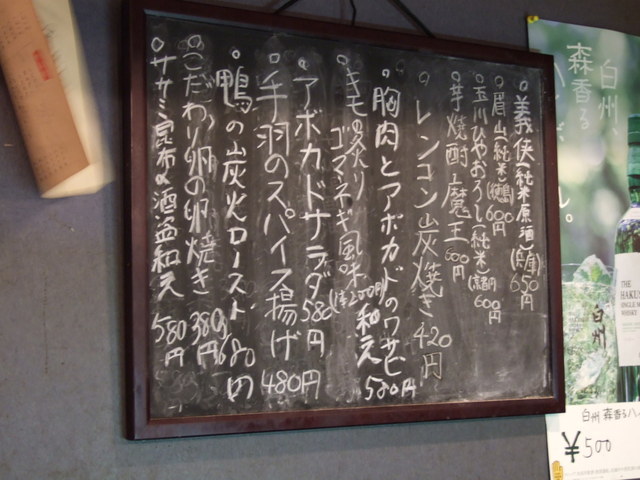 白州、
森香る
ハイボール。
。義侠(純米原酒)(兵庫)650円
。眉山(純米)(徳島)600円
。玉川ひやおろし(純米)600円
。芋焼酎 魔王 600円
。レンコン炭焼き 420円
。胸肉とアボカドのワサビ和え 580円
。キモの炙り
ゴマネギ風味
。アボカドサラダ 580円
。手羽のスパイス揚げ 480円
。鴨の炭火ロースト 680円
。こだわり卵の卵焼き 380円
。ササミ昆布の酒盗和え 580円
THE
HAKU
SINGLE M
WHISKY
白州
白州 森香るハイ
¥500